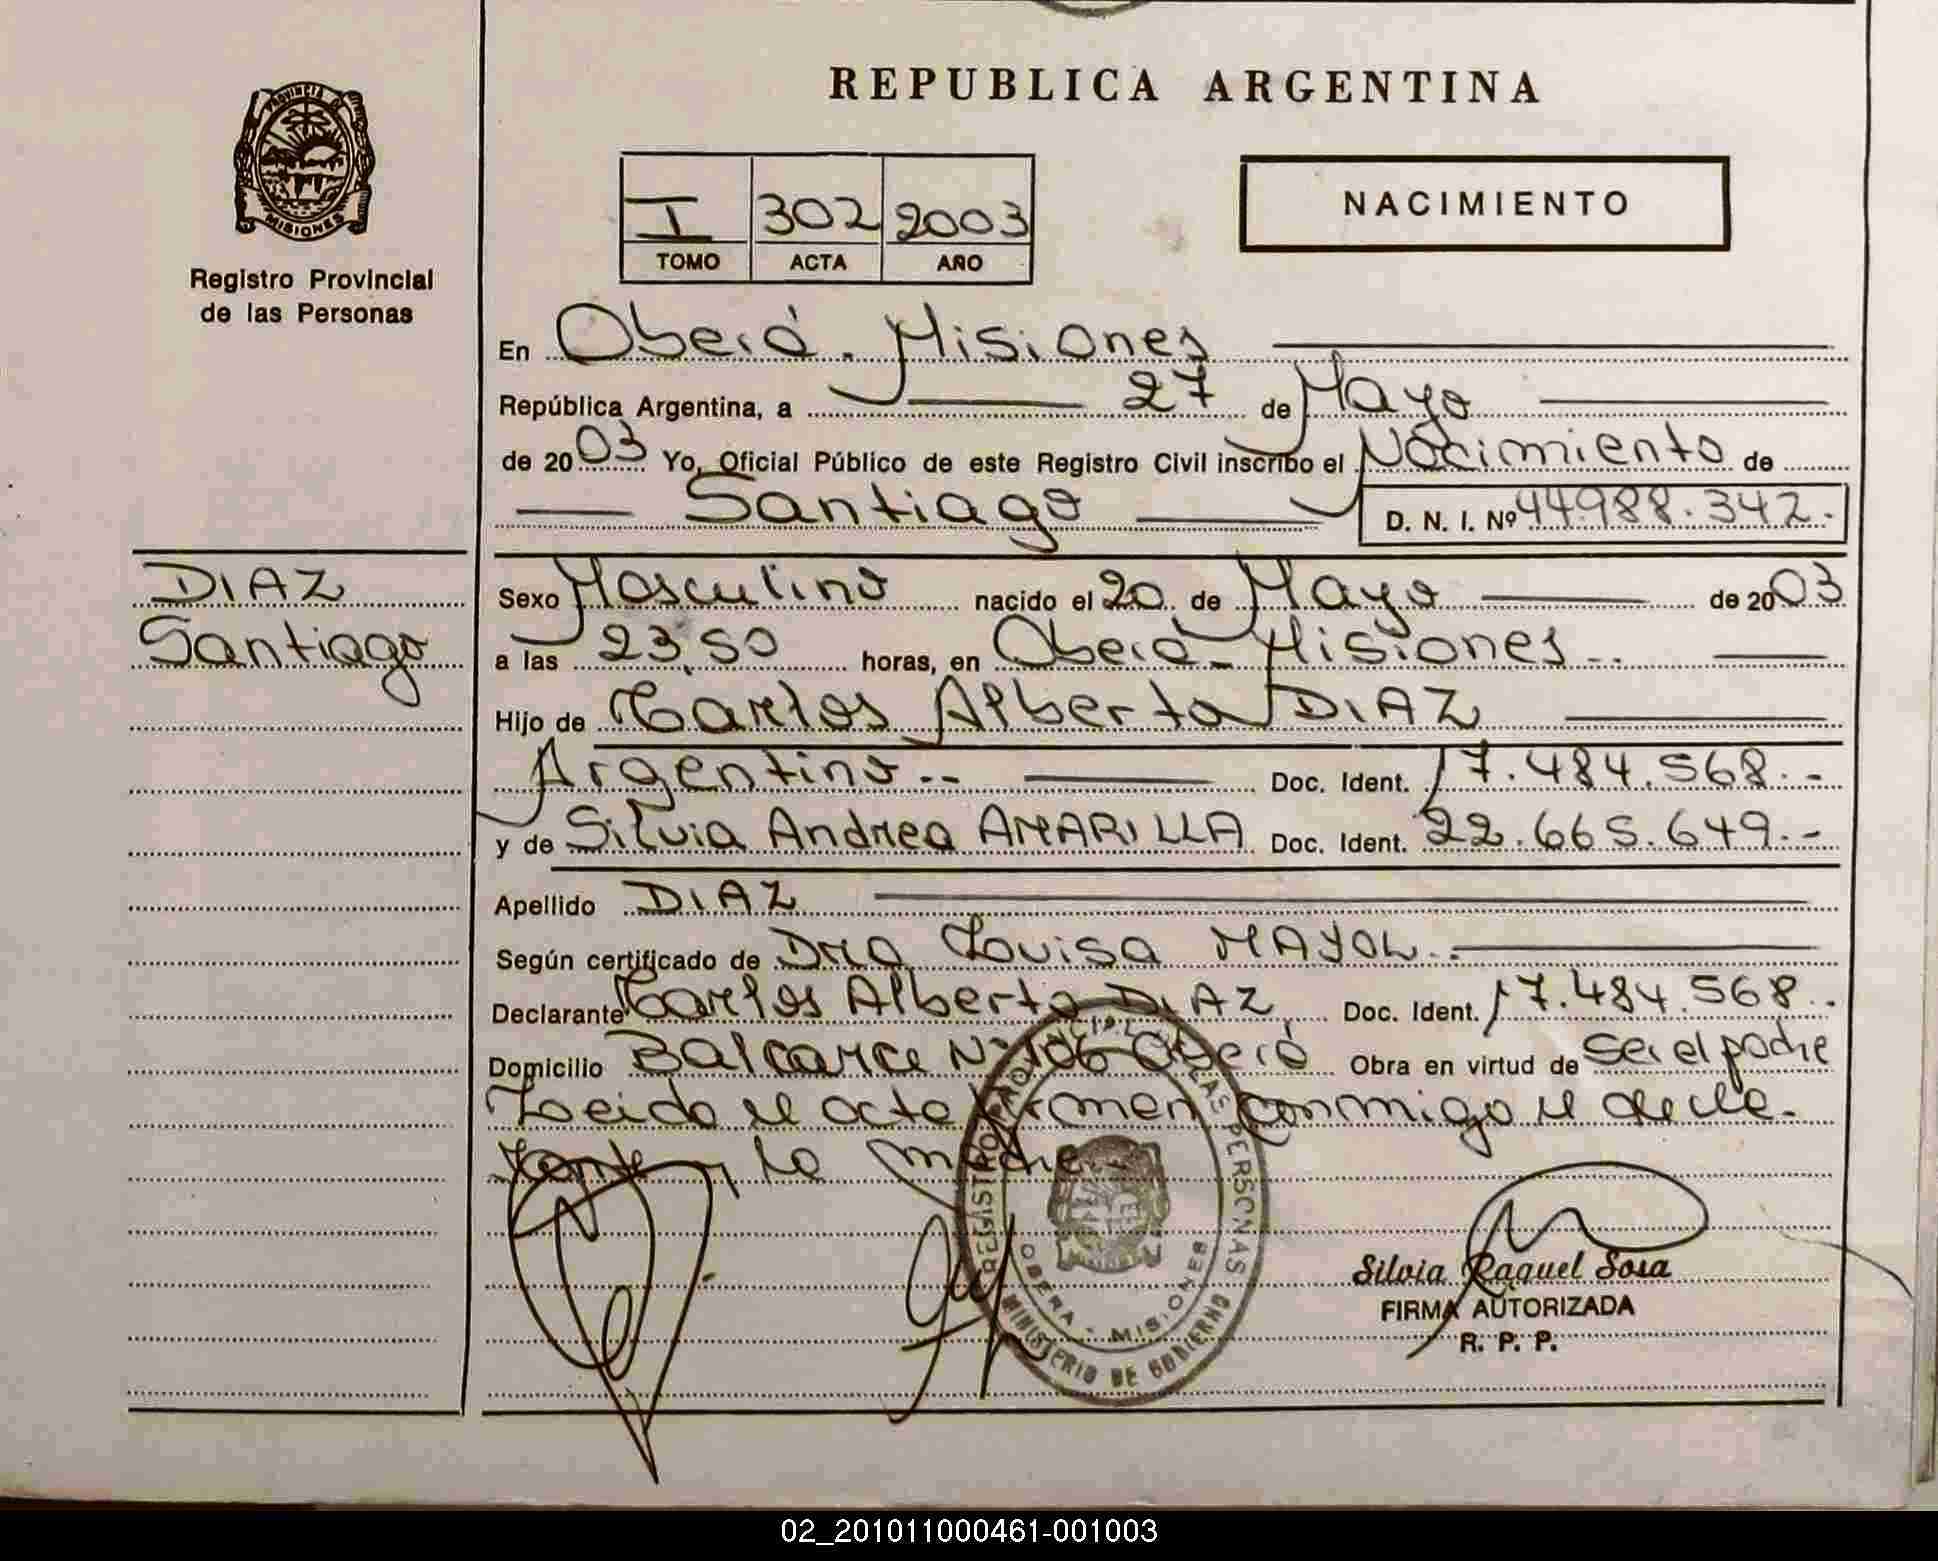 REPUBLICA ARGENTINA
PROVINCIA DE
MISIONES
Registro Provincial
de las Personas
I 302 2003
TOMO ACTA AÑO
NACIMIENTO
En Oberá - Misiones
República Argentina, a 27 de Mayo
de 2003 Yo, Oficial Público de este Registro Civil inscribo el Nacimiento de
Santiago D. N. I. Nº 44988.342.
DIAZ
Santiago
Sexo Masculino nacido el 20 de Mayo de 2003
a las 23,50 horas, en Oberá - Misiones
Hijo de Carlos Alberto DIAZ
Argentino.-- Doc. Ident. 17.484.568.-
y de Silvia Andrea AMARILLA Doc. Ident. 22.665.649.-
Apellido DIAZ
Según certificado de Dra Louisa MAYOL.
Declarante Carlos Alberto DIAZ Doc. Ident. 17.484.568.
Domicilio Balcarce Nº 106 Oberá Obra en virtud de Ser el padre
Leido el acta firman conmigo el decla-
rante y la madre.-
REGISTRO PROVINCIAL DE LAS PERSONAS
OBERA - MISIONES
MINISTERIO DE GOBIERNO
Silvia Raquel Sosa
FIRMA AUTORIZADA
R. P. P.
02_201011000461-001003